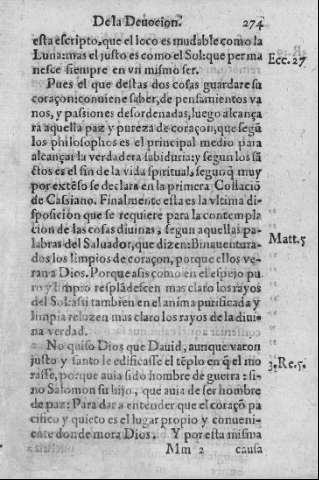 De la Deuocion. 274
esta escripto, que el loco es mudable como la
Luna: mas el justo es como el Sol: que perma Ecc. 27
nesce siempre en vn mismo ser.
Pues el que destas dos cosas guardare su
coraçon: conuiene saber, de pensamientos va
nos, y passiones desordenadas, luego alcança
ra aquella paz y pureza de coraçon, que segũ
los philosophos es el principal medio para
alcançar la verdadera sabiduria: y segun los sã
ctos es el fin de la vida spiritual, segun q̃ muy
por extẽso se declara en la primera Collaciõ
de Cassiano. Finalmente esta es la vltima di-
sposicion que se requiere para la contempla
cion de las cosas diuinas, segun aquellas pa-
labras del Saluador, que dizen: Binauentura- Matt. 5
dos los limpios de coraçon, porque ellos ve-
ran a Dios. Porque asis como en el espejo pu
ro y limpio resplãdescen mas claro los rayos
del Sol: assi tambien en el anima purificada y
limpia reluzen mas claro los rayos de la diui
na verdad.
No quiso Dios que Dauid, aunque varon
justo y santo le edificasse el tẽplo en q̃ el mo 3. Re. 5.
rasse, porque auia sido hombre de guerra: si-
no Salomon su hijo, que auia de ser hombre
de paz: Para dar a entender que el coraçõ pa
cifico y quieto es el lugar proprio y conueni-
ente donde mora Dios. Y por esta misma
Mm 2 causa